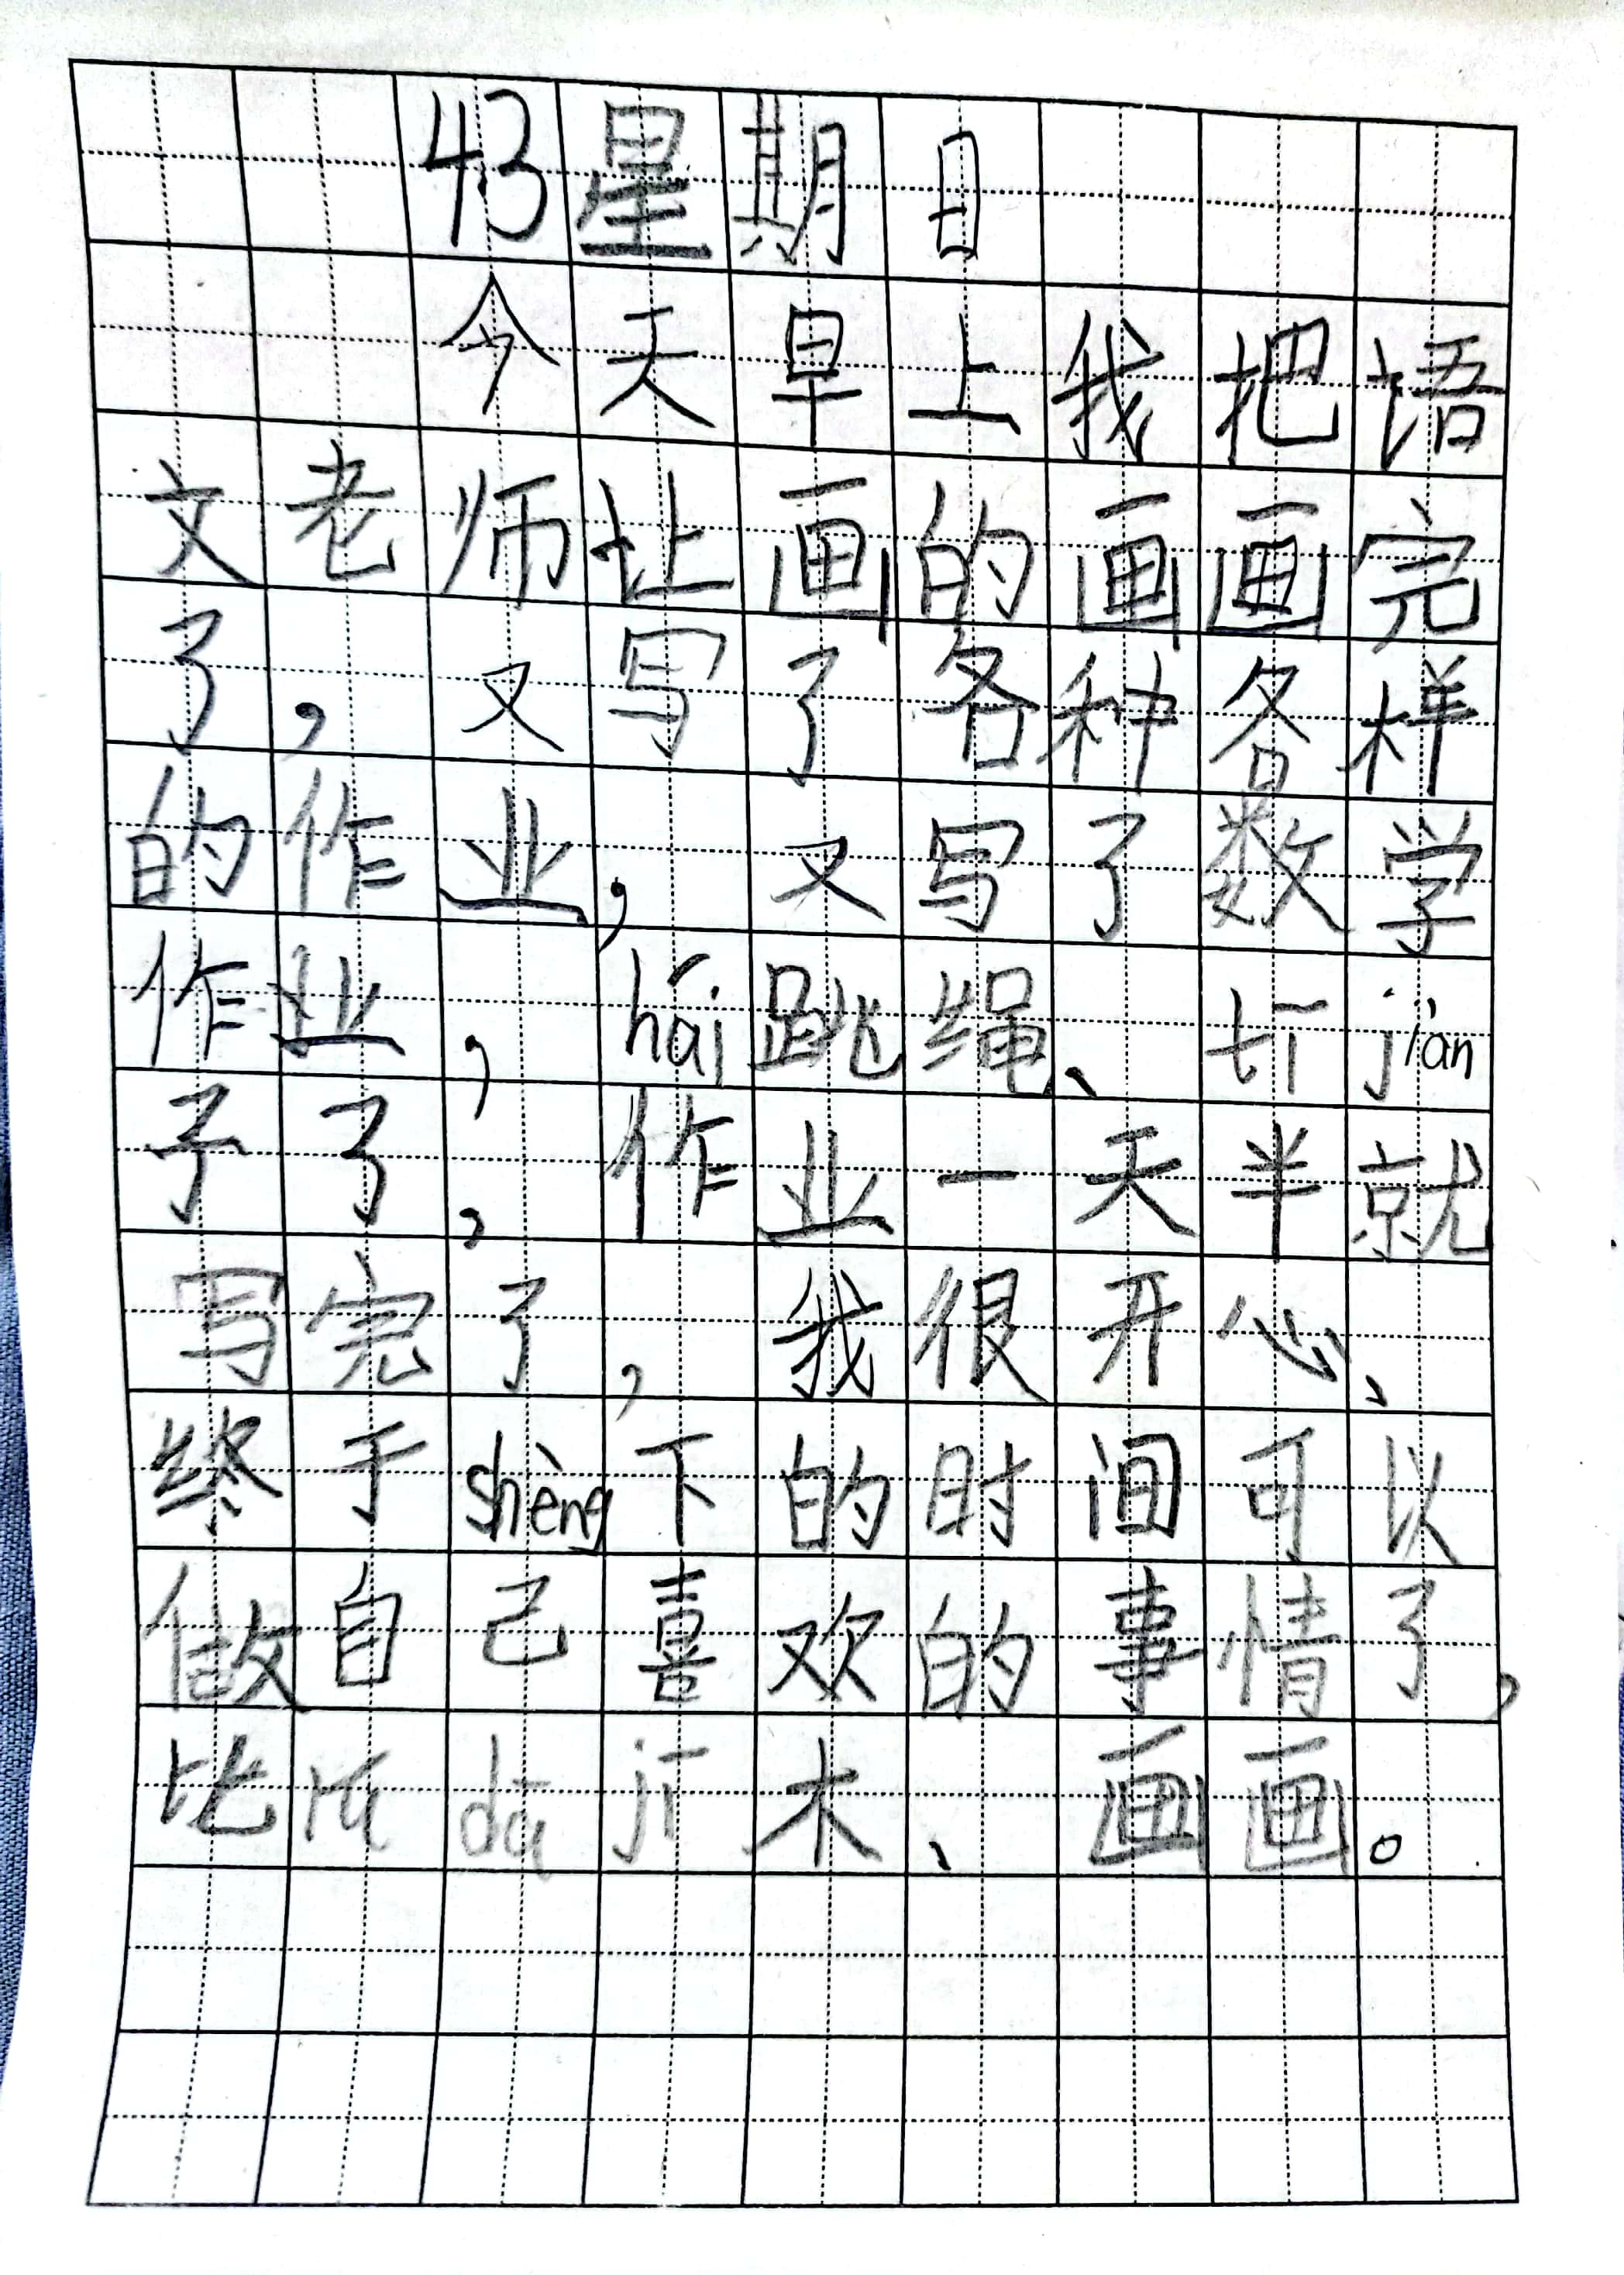 4.3星期日
今天早上我把语
文老师让画的画画完
了,又写了各种各样
的作业,又写了数学
作业,hái跳绳、打jiàn
子了,作业一天半就
写完了,我很开心、
终于shèng下的时间可以
做自己喜欢的事情了,
比rú dā jī木、画画。